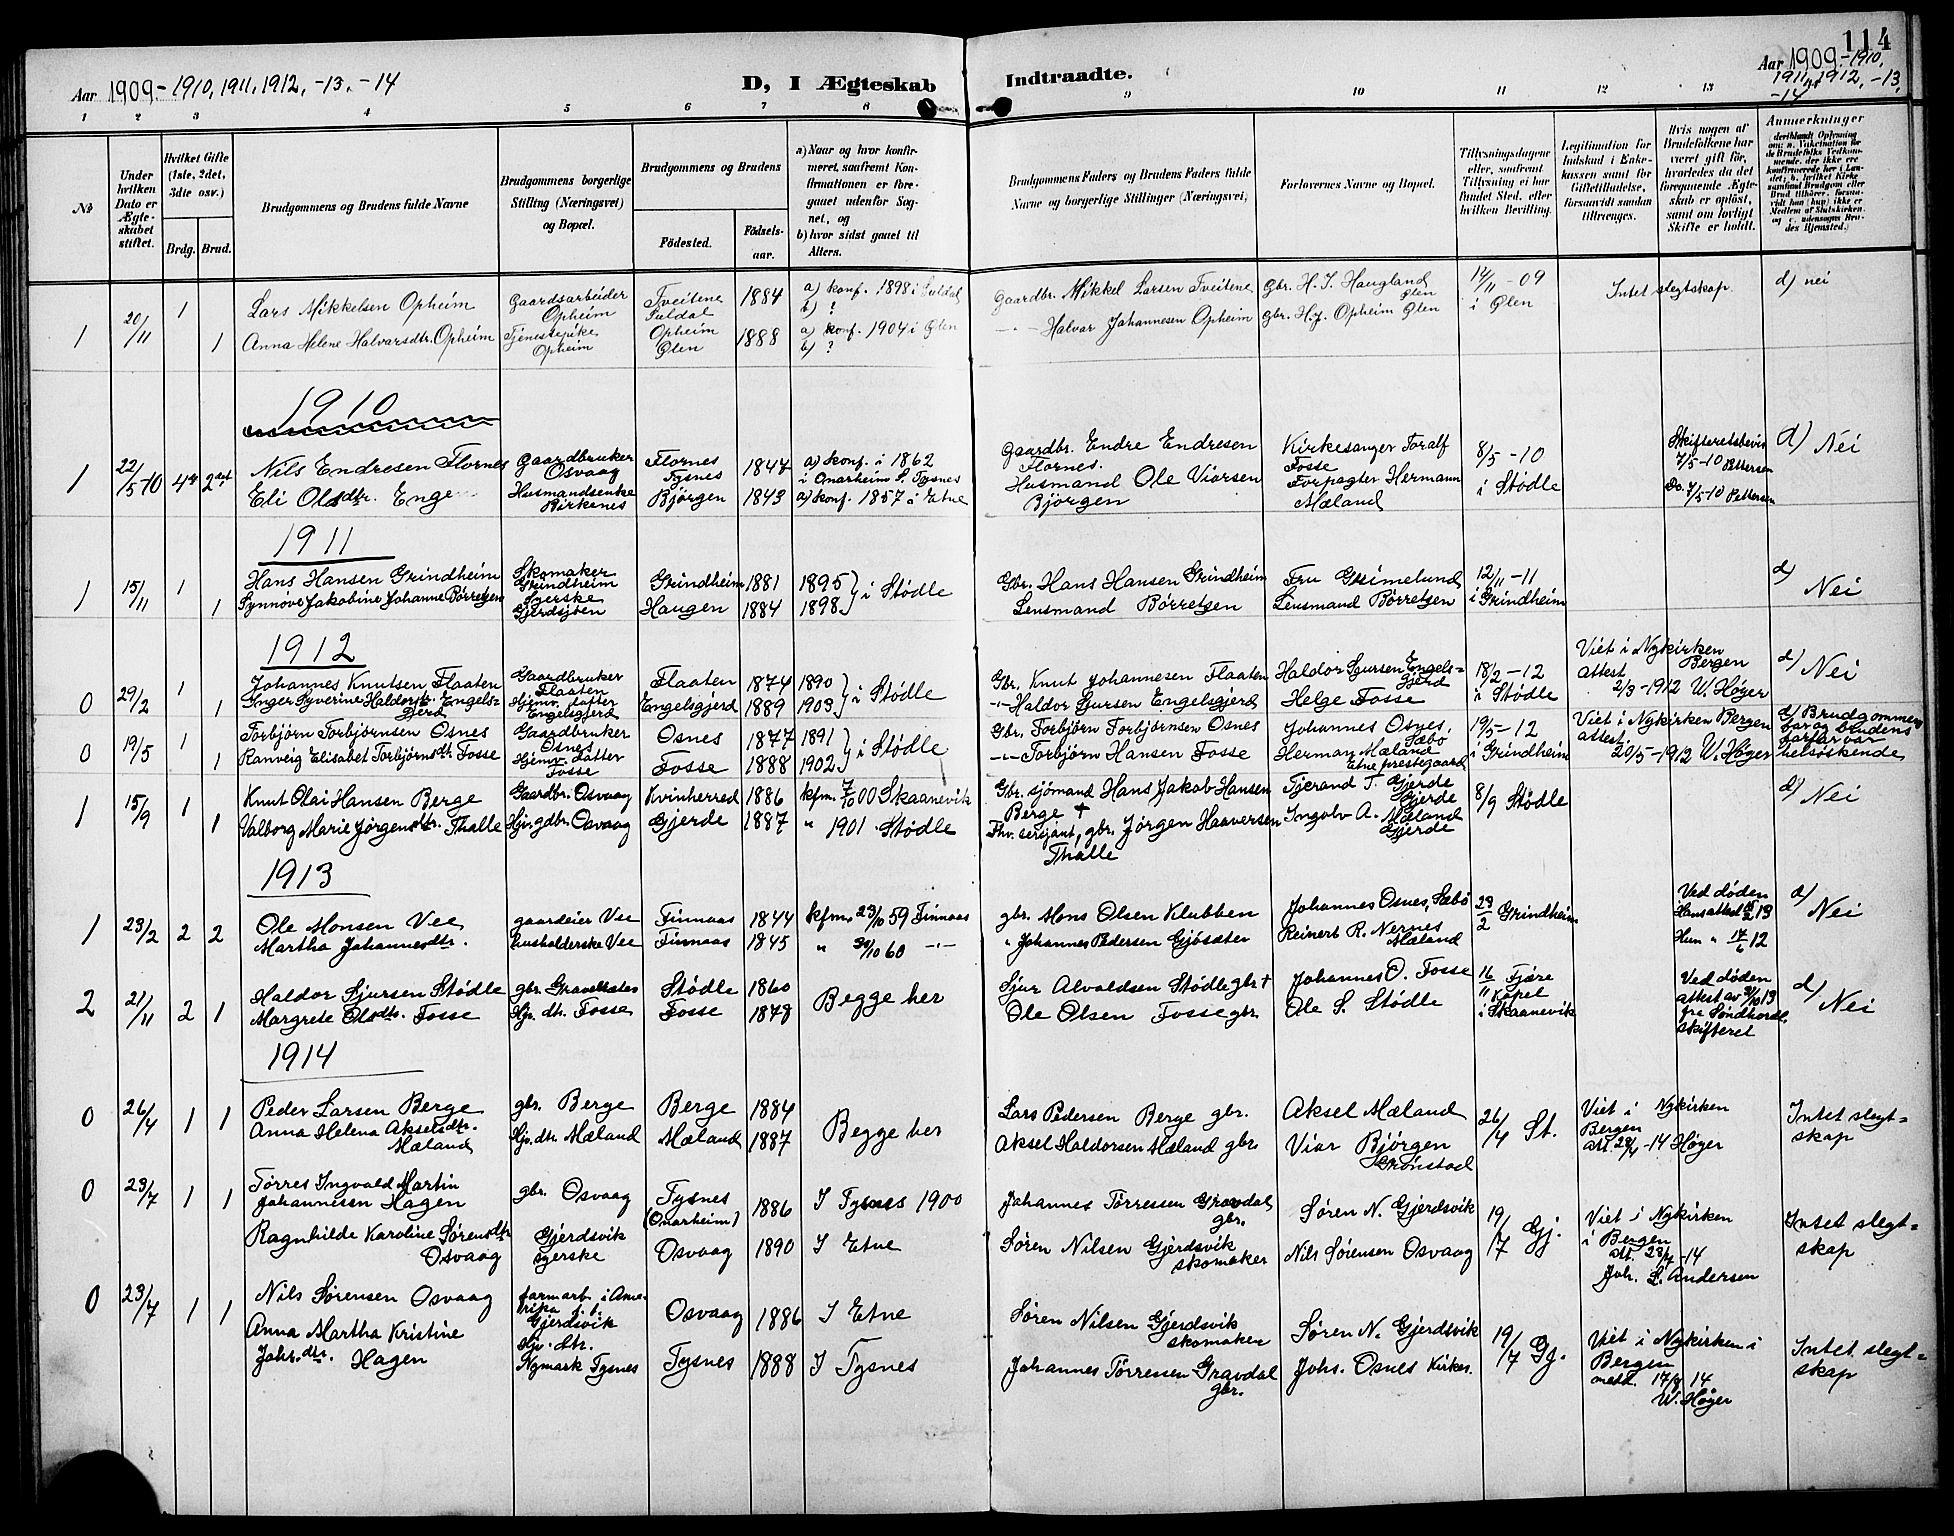 114
Aar 1909-1910, 1911, 1912, -13, -14
D, I Ægteskab Indtraadte.
Aar 1909-1910,
1911, 1912, -13,
-14
1 2 3 4 5 6 7 8 9 10 11 12 13
№
Under hvilken Dato er Ægteskabet stiftet.
Hvilket Gifte (1ste, 2det, 3dte osv.)
Brdg. Brud.
Brudgommens og Brudens fulde Navne
Brudgommens borgerlige Stilling (Næringsvei) og Bopæl.
Brudgommens og Brudens
Födested. Födselsaar.
a) Naar og hvor konfirmeret, saafremt Konfirmationen er foregaaet udenfor Sognet, og
b) hvor sidst gaaet til Alters.
Brudgommens Faders og Brudens Faders fulde Navne og borgerlige Stillinger (Næringsvei)
Forlovernes Navne og Bopæl.
Tillysningsdagene eller, saafremt Tillysning ei har fundet Sted, efter hvilken Bevilling.
Legitimation for Indskud i Enkekassen samt for Giftetilladelse, forsaavidt saadan tiltrænges.
Hvis nogen af Brudefolkene har været gift för, hvorledes da det foregaaende Ægteskab er oplöst, samt om lovligt Skifte er holdt.
Anmerkninger
1 20/11 1 Lars Mikkelsen Opheim Gaardsarbeider Opheim Tveitene Suldal 1884 a) konf. 1898 i Suldal b) ? Gaardbr. Mikkel Larsen Tveitene Gbr. H. I. Haugland Ølen 14/11 -09 i Ølen Intet slegtskap. d) nei
1 Anna Helene Halvarsdtr. Opheim Tjenestepike Opheim Opheim Ølen 1888 a) konf. 1904 i Ølen b) ? -"- Halvar Johannesen Opheim Gbr. H. J. Opheim Ølen
1910
1 22/5-10 4de 2det Nils Endresen Flornes Gaardbruker Osvaag Flornes Tysnes 1847 a) konf. i 1862 i Onarheim S. Tysnes Gaardbr. Endre Endresen Flornes. Kirkesanger Toralf Fosse 8/5 -10 i Stødle Skifteretsbevis 7/5-10 Pettersen d) Nei
Eli Olsdtr. Enge Husmandsenke Birkenes Bjørgen 1843 a) konf. 1857 i Etne Husmand Ole Viorsen Bjørgen Forpagter Hermann Mæland Do. 7/5-10 Pettersen
1911
1 15/11 1 Hans Hansen Grindheim Skomaker Grindheim Grindheim 1881 1895 i Stødle Gbr. Hans Hansen Grindheim Fru Grimelund 12/11 -11 i Grindheim d) Nei
1 Synnøve Jakobine Johanne Børretzen Syerske Haugen 1884 1898 Lensmand Børretzen Lensmand Børretzen
1912
0 29/2 1 Johannes Knutsen Flaaten Gaardbruker Flaaten Flaaten 1874 1890 i Stødle Gbr. Knut Johannesen Flaaten Haldor Sjursen Engelsgjerd 18/2 -12 i Stødle Viet i Nykirken Bergen attest 2/3-1912 W. Høyer d) Nei
1 Inger Syverine Haldorsdtr. Engelsgjerd Hjemv. datter Engelsgjerd Engelsgjerd 1889 1903 -"- Haldor Sjursen Engelsgjerd Helge Fosse
0 19/5 1 Torbjörn Torbjörnsen Osnes Gaardbruker Osnes Osnes 1877 1891 i Stødle Gbr. Torbjörn Torbjörnsen Osnes Johannes Osnes, Sæbö 19/5 -12 i Grindheim Viet i Nykirken Bergen attest. 20/5-1912 W. Høyer d) Brudgommens far og brudens farfar var helsöskende
1 Ranveig Elisabet Torbjörnsdtr. Fosse Hjemv. datter Fosse Fosse 1888 1902 -"- Torbjörn Hansen Fosse Herman Mæland Etne prestegaard
1 15/9 1 Knut Olai Hansen Berge Gaardbr. Osvaag Kvinherred 1886 kfm. 7/10 00 Skaanevik Gbr. sjömand Hans Jakob Hansen Berge + Tjerand T. Gjerde Gjerde 8/9 Stødle d) Nei
1 1 Valborg Marie Jørgensdtr. Thalle Hjv. gdbr. Osvaag Gjerde 1887 " 1901 Stødle Fhv. sersjant, gbr. Jørgen Haaversen Thalle Ingolv A. Mæland Gjerde
1913
1 23/2 2 2 Ole Monsen Vee gaardeier Vee Finnaas 1844 kfm. 23/10 59 Finnaas gbr. Mons Olsen Klubben Johannes Osnes, Sæbö 23/2 Grindheim Ved döden Hans attest 13 d) Nei
Martha Johannesdtr. husholderske Vee Finnaas 1845 " 30/10 60 -"- " Johannes Pedersen Gjösæter Reinert R. Nernes Mæland Hun " 17/6 12
2 21/11 2 1 Haldor Sjursen Stødle gbr. Stødle 1860 Begge her Sjur Alvaldsen Stødle gbr + Johannes O. Fosse 16/11 Fjære Kapel i Skaanevik Ved döden attest av 31/10 13 fra Söndhordl. skifteret d) Nei
Margrete Olsdtr. Fosse Hjv. dtr. Fosse Fosse 1878 Ole Olsen Fosse gbr. Ole S. Stødle
1914
0 26/4 1 1 Peder Larsen Berge gbr. Berge Berge 1884 Begge her Lars Pedersen Berge gbr. Aksel Mæland 26/4 St. Viet i Nykirken Bergen att. 28/4-14 Høyer Intet slegtskap
Anna Helena Akselsdtr. Mæland Hjv. dtr. Mæland Mæland 1887 Aksel Haldorsen Mæland gbr. Viar Bjørgen Grönstad
0 23/7 1 1 Tørres Ingvald Martin Johannesen Hagen gbr. Osvaag Tysnes (Onarheim) 1886 I Tysnes 1900 Johannes Tørressen Gravdal gbr. Søren N. Gjerdsvik 19/7 Gj. Viet i Nykirken i Bergen att. 23/7-14 Joh. L. Andersen Intet slegtskap
Ragnhilde Karoline Sørensdtr Osvaag Gjerdsvik syerske Osvaag 1890 I Etne Søren Nilsen Gjerdsvik skomaker Nils Sørensen Osvaag
0 23/7 1 1 Nils Sørensen Osvaag farmarb. i Amerika Gjerdsvik Osvaag 1886 I Etne Søren Nilsen Gjerdsvik skomaker Søren N. Gjerdsvik 19/7 Gj. Viet i Nykirken i Bergen 14 W. Høyer Intet slegtskap
Anna Martha Kristine Johs.dtr. Hagen Hjv. dtr. Nymark Tysnes Tysnes 1888 I Tysnes Johannes Tørressen Gravdal gbr. Johs. Osnes Kirkes.